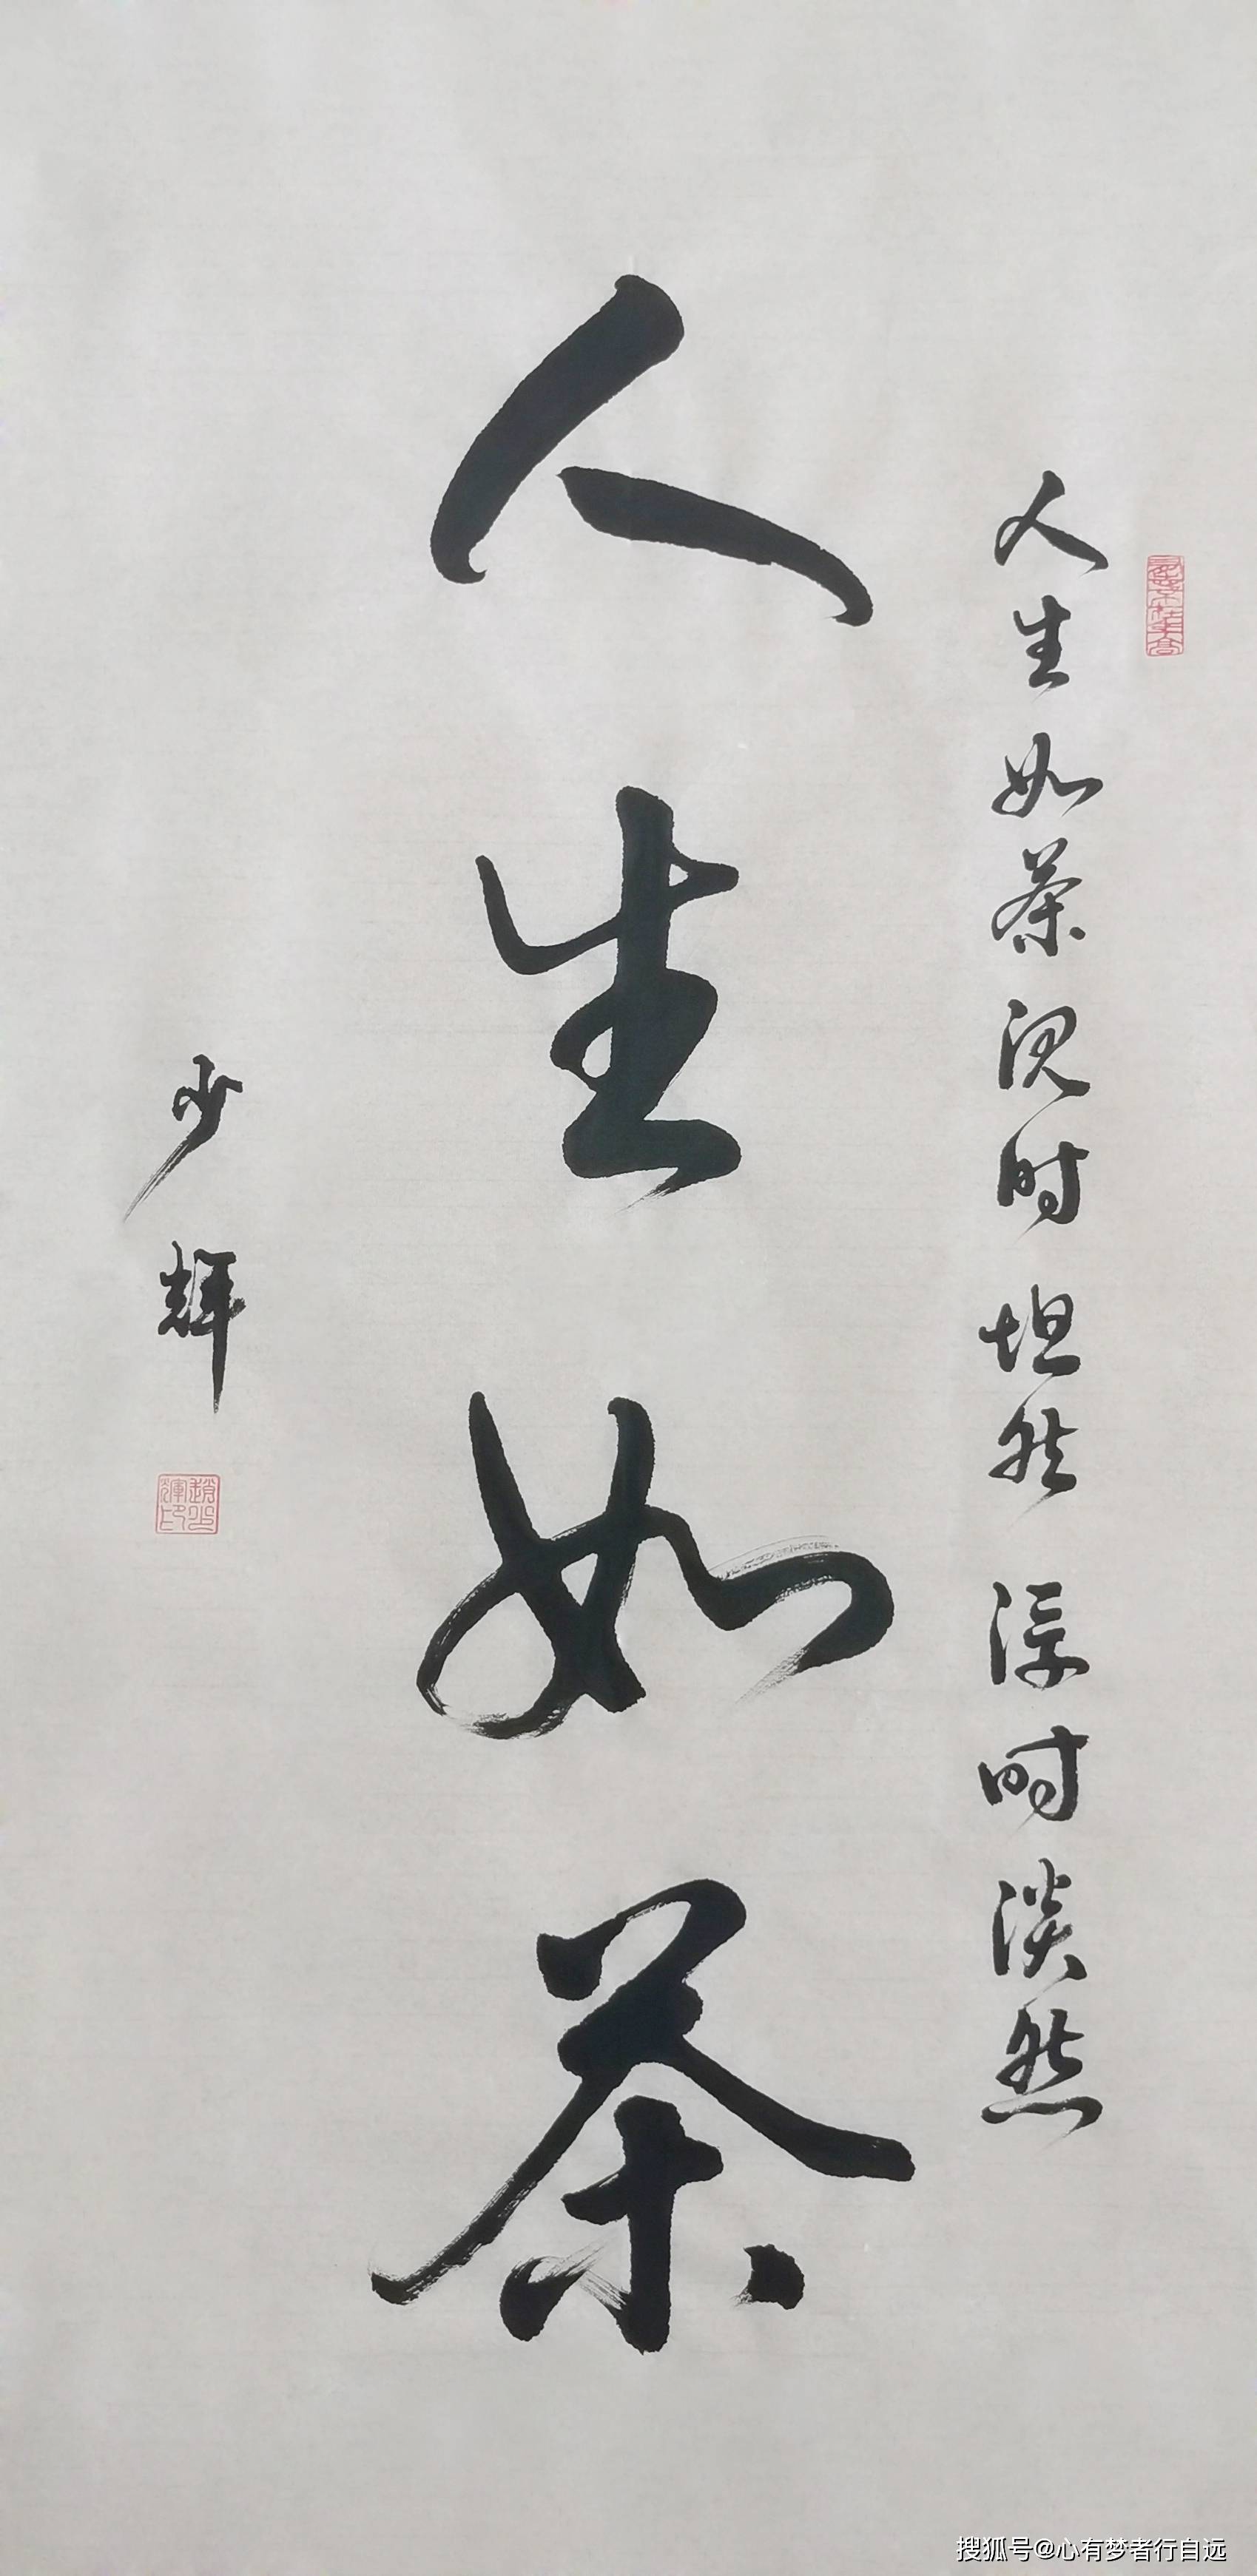 人生如茶沉时坦然浮时淡然
人生如茶
少辉
趙少輝印
搜狐号@心有梦者行自远